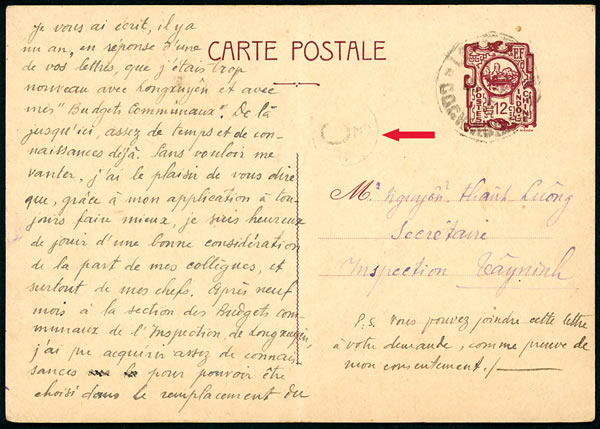 Je vous ai écrit, il y a
un an, en réponse d'une
de vos lettres, que j'étais trop
nouveau avec Longxuyên et avec
mes "Budgets Communaux". De là
jusqu'ici, assez de temps et de con-
naissances déjà. Sans vouloir me
vanter, j'ai le plaisir de vous dire
que, grâce à mon application à tou-
jours faire mieux, je suis heureux
de jouir d'une bonne considération
de la part de mes collègues, et
surtout de mes chefs. Après neuf
mois à la section des Budgets com-
munaux de l'Inspection de Longxuyên,
j'ai pu acquérir assez de connais-
sances pour pouvoir être
choisi dans le remplacement du
CARTE POSTALE
POSTES
RF
INDO
CHINE
12
Mr Nguyên Thành Luông
Secrétaire
Inspection Tâyninh
P.S. Vous pouvez joindre cette lettre
à votre demande, comme preuve de
mon consentement./